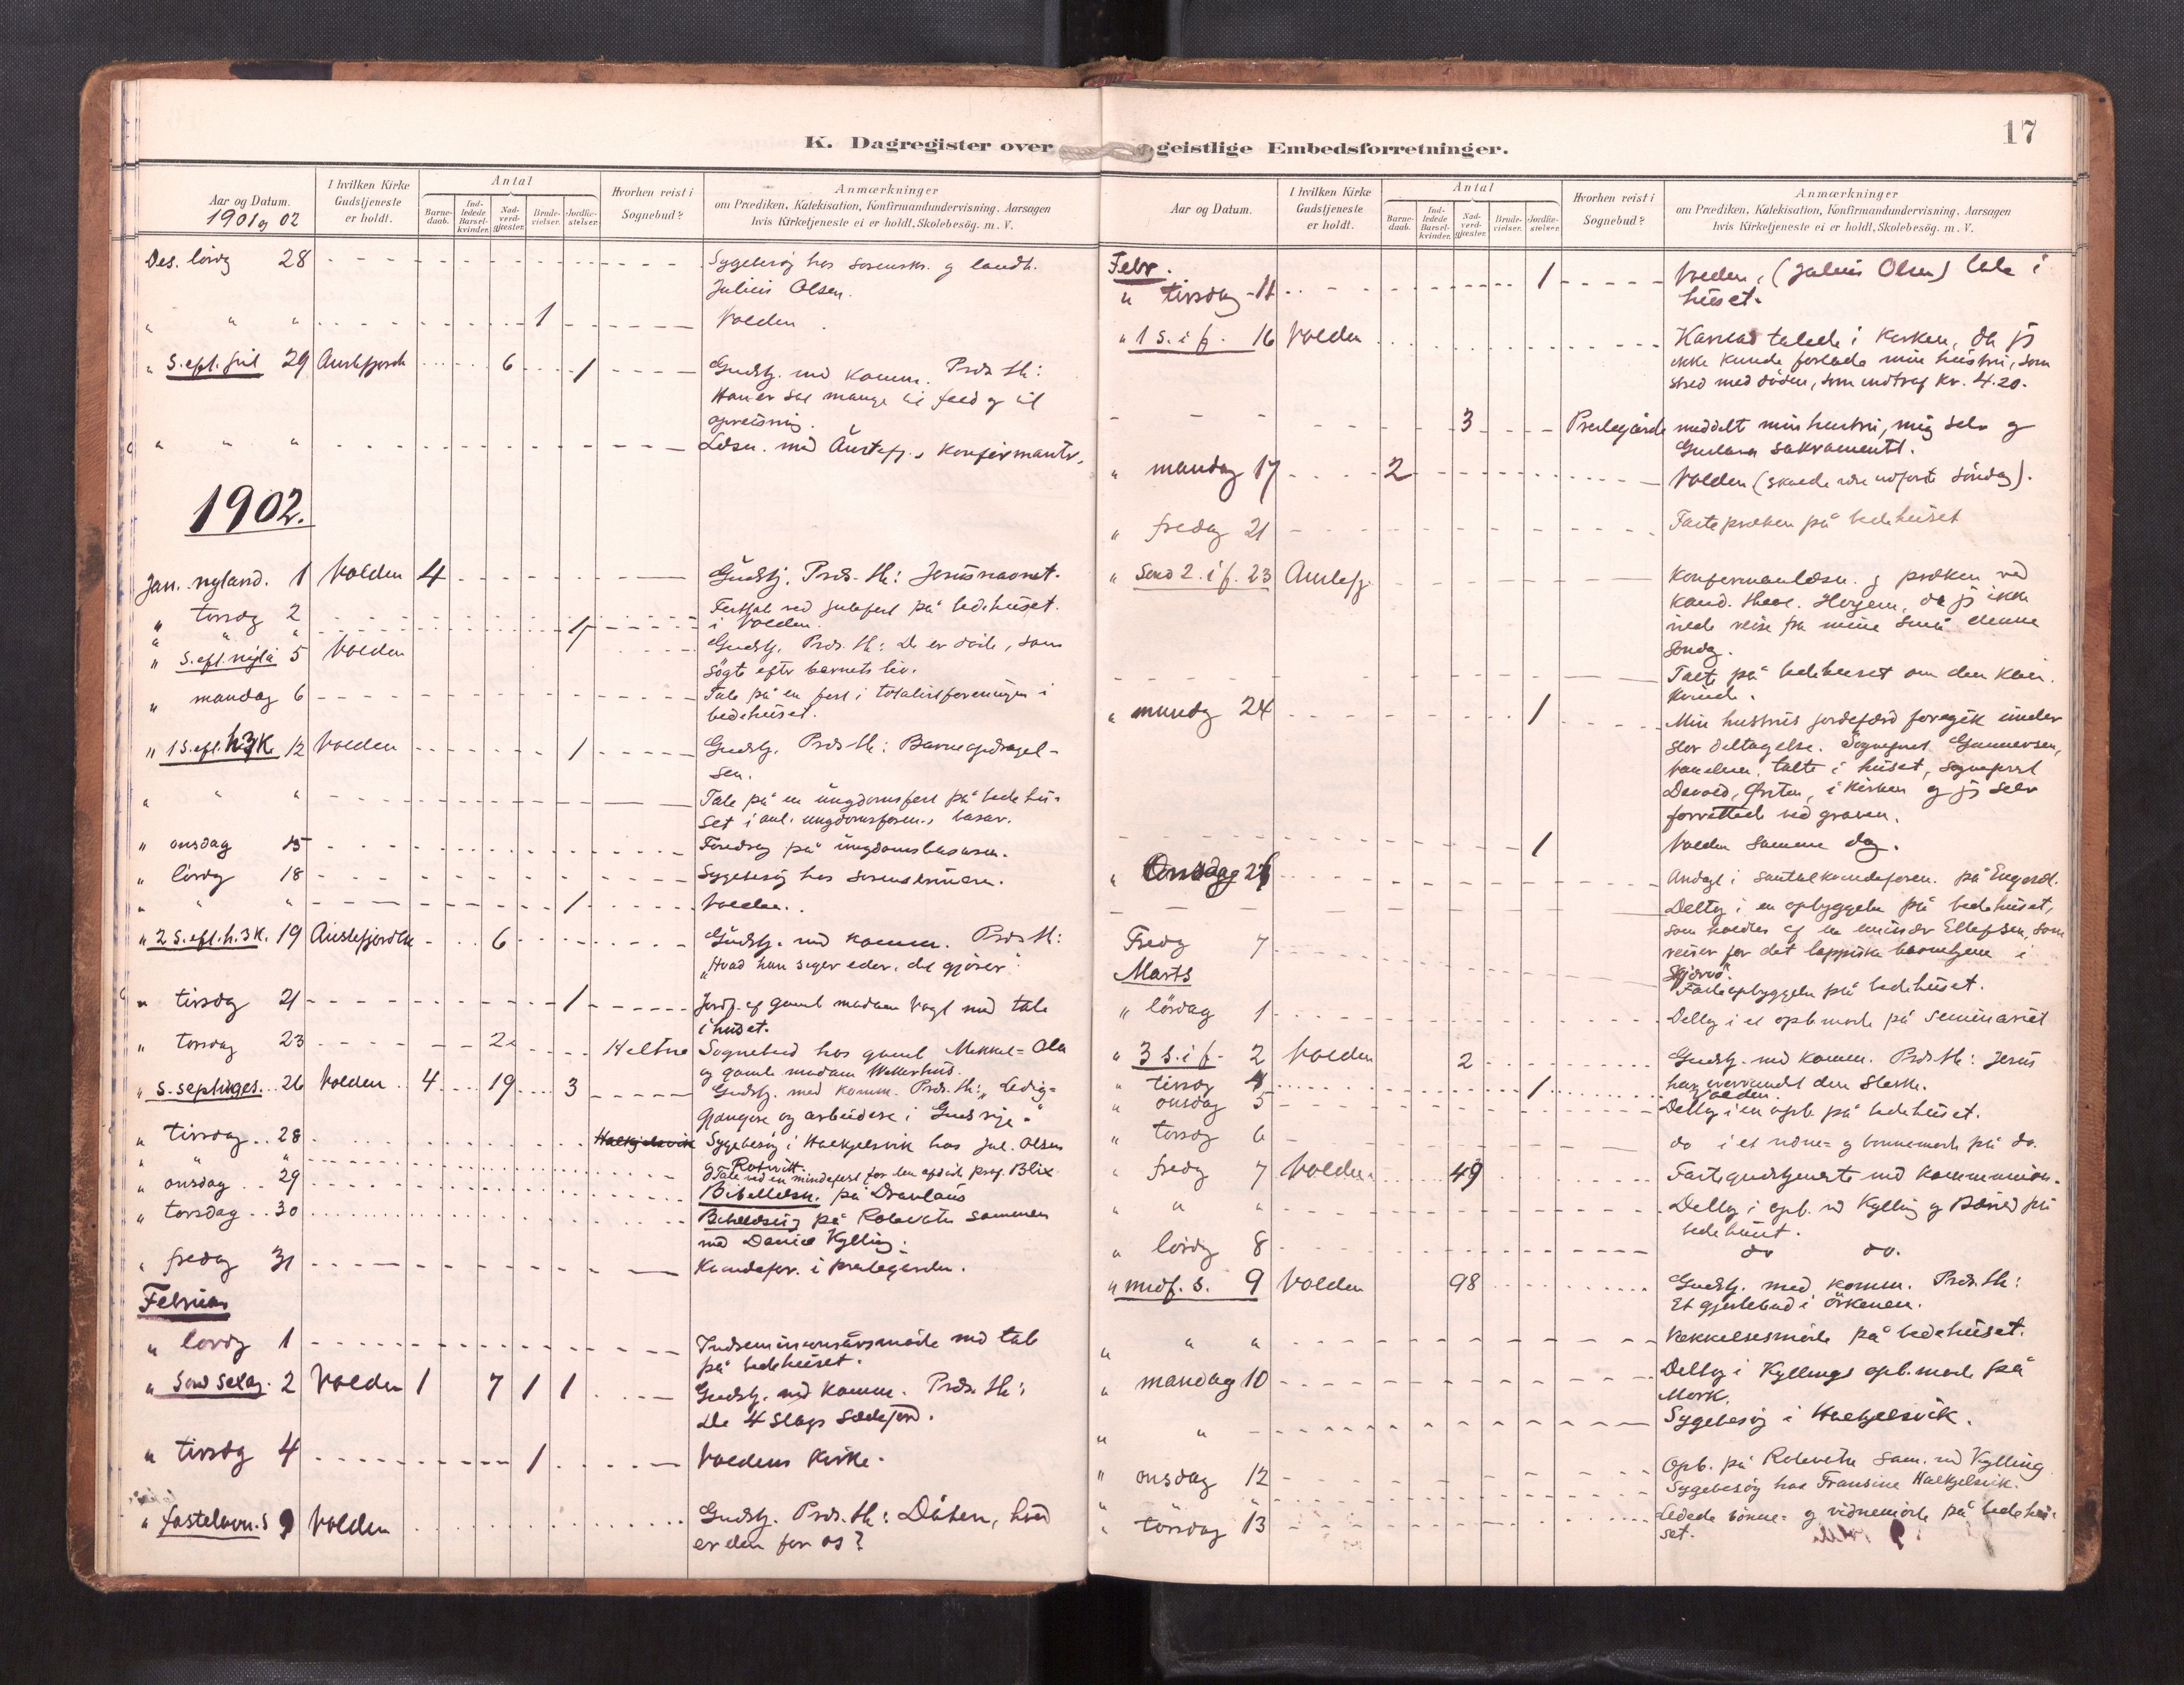 17
K. Dagregister over geistlige Embedsforretninger.
Aar og Datum. 1901 og 02
I hvilken Kirke Gudstjeneste er holdt.
Antal
Barne-daab. Ind-ledede Barsel-kvinder. Nad-verd-gjæster. Brude-vielser. Jordfæ-stelser.
Hvorhen reist i Sognebud?
Anmærkninger
om Prædiken, Katekisation, Konfirmandundervisning. Aarsagen
hvis Kirketjeneste ei er holdt. Skolebesög. m. V.
Des. lördg 28 Sygebesög hos sorensk. og landh.
Julius Olsen.
" " " 1 Volden.
" S. eft. jul 29 Austefjord 6 1 Gudstj. med komm. Præd. th:
Han er sat mange til fald og til
opreisning.
" " " Læsn. med Austefj.s konfirmanter.
1902.
Jan. nyt.aarsd. 1 Volden 4 Gudstj. Præd. th: Jesusnavnet.
" torsdg 2 Festtale ved julefest på bedehuset.
" " " 1 i Volden.
" S. eft. nytå 5 Volden Gudstj. Præd. th: De er døde, som
søgte efter barnets liv.
" mandag 6 Tale på en fest i totalistforeningen i
bedehuset.
" 1 S. eft. h3K. 12 Volden 1 Gudstj. Præd. th: Barneopdragel-
sen.
" " " Tale på en ungdomsfest på bedehu-
set i anl. ungdomsforen.s basar.
" onsdag 15 Foredrag på ungdomsbasaren.
" lördg 18 Sygebesög hos sorenskriveren.
" " " 1 Volden.
" 2 S. eft. h. 3 K. 19 Austefjorden 6 Gudstj. med komm. Præd. th:
"Hvad han siger eder, det gjører".
" tirsdg 21 1 Jordf. af gamle madam Vogt med tale
i huset.
" torsdag 23 2 Heltne Sognebud hos gamle Mekkel-Ola
og gamle madam Wellerhus.
" S. septuages. 26 Volden 4 19 3 Gudstj. med komm. Præd. th: "Ledig-
gjængere og arbeidere i Guds rige".
" tirsdag 28 Halkjelsvik Sygebesög i Halkjelsvik hos Jul. Olsen
og Rotevatt.
" " " Tale ved en mindefest for den afdøde prof. Blix
" onsdag 29 Bibellæsn. på Dravlaus
" torsdag 30 Bibellæsn. på Rotevatn sammen
med Daniel Kylling.
" fredag 31 Kvindefor. i prestegarden.
Februar
" lördg 1 Indremissionsårsmøde med tale
på bedehuset.
" Sønd sexag. 2 Volden 1 7 1 1 Gudstj. med komm. Præd. th:
De 4 slags sædejord.
" tirsdg 4 1 Voldens kirke.
" fastelavn. s 9 Volden Gudstj. Præd. th: Dåben, hvad
er den for os?
Aar og Datum.
I hvilken Kirke Gudstjeneste er holdt.
Antal
Barne-daab. Ind-ledede Barsel-kvinder. Nad-verd-gjæster. Brude-vielser. Jordfæ-stelser.
Hvorhen reist i Sognebud?
Anmærkninger
om Prædiken, Katekisation, Konfirmandundervisning. Aarsagen
hvis Kirketjeneste ei er holdt. Skolebesög. m. V.
Febr.
" tirsdag 11 1 Volden, (Julius Olsen) tale i
huset.
" 1 S. i f. 16 Volden talede i kirken, da jeg
ikke kunde forlade min hustru, som
stred med døden, som indtraf kl. 4.20.
- - - 3 Prestegården meddelt min hustru, mig selv og
sakramentet.
" mandag 17 2 Volden (skulde være udført søndag).
" fredag 21 Fastepræken på bedehuset
" Sønd 2. i f. 23 Austefj. Konfirmantlæsn. og præken ved
kand. theol. Hovden, da jeg ikke
vilde reise fra mine små denne
søndag.
Faste på bedehuset om den kan.
kvinde.
" mandg 24 1 Min hustrus jordefærd foregik under
stor deltagelse. Sogneprest Gunnersen,
Vanelven, talte i huset, sogneprest
Devold, Ørsten, i kirken og jeg selv
forrettede ved graven.
1 Volden samme dag.
" Onsdag 26 Andagt i santalkvindeforen. på Engeset.
Deltog i en opbyggelse på bedehuset,
som holdtes af en emissær Ellefsen, som
reiser for det lappiske barnehjem i
Skjervø.
Fredg 7 Fasteopbyggelse på bedehuset.
Marts
" lördag 1 Deltog i et opb. møde på seminariet
" 3 S. i f. 2 Volden 2 Gudstj. med komm. Præd. th: Jesus
har overvundet den stærke.
" tirsdg 4 1 Volden.
" onsdag 5 Deltog i en opb. på bedehuset.
" torsdg 6 do i et vidne- og bønnemøde på do.
" fredg 7 Volden 49 Fastegudstjeneste med kommunion.
" " " Deltog i opb. ved Kylling og på
bedehuset.
" lördg 8 do do.
" midf. s. 9 Volden 98 Gudstj. med komm. Præd. th:
Et gjestebud i ørkenen.
" " " Vækkelsesmøde på bedehuset.
" mandag 10 Deltog i Kyllings opb. møde på
Mork.
" " Sygebesög i Halkjelsvik.
" onsdag 12 Opb. på Rotevatn sam. med Kylling
" " Sygebesög hos Fransine Halkjelsvik.
" torsdag 13 Ledede bønne- og vidnemøde på bedehu-
set.